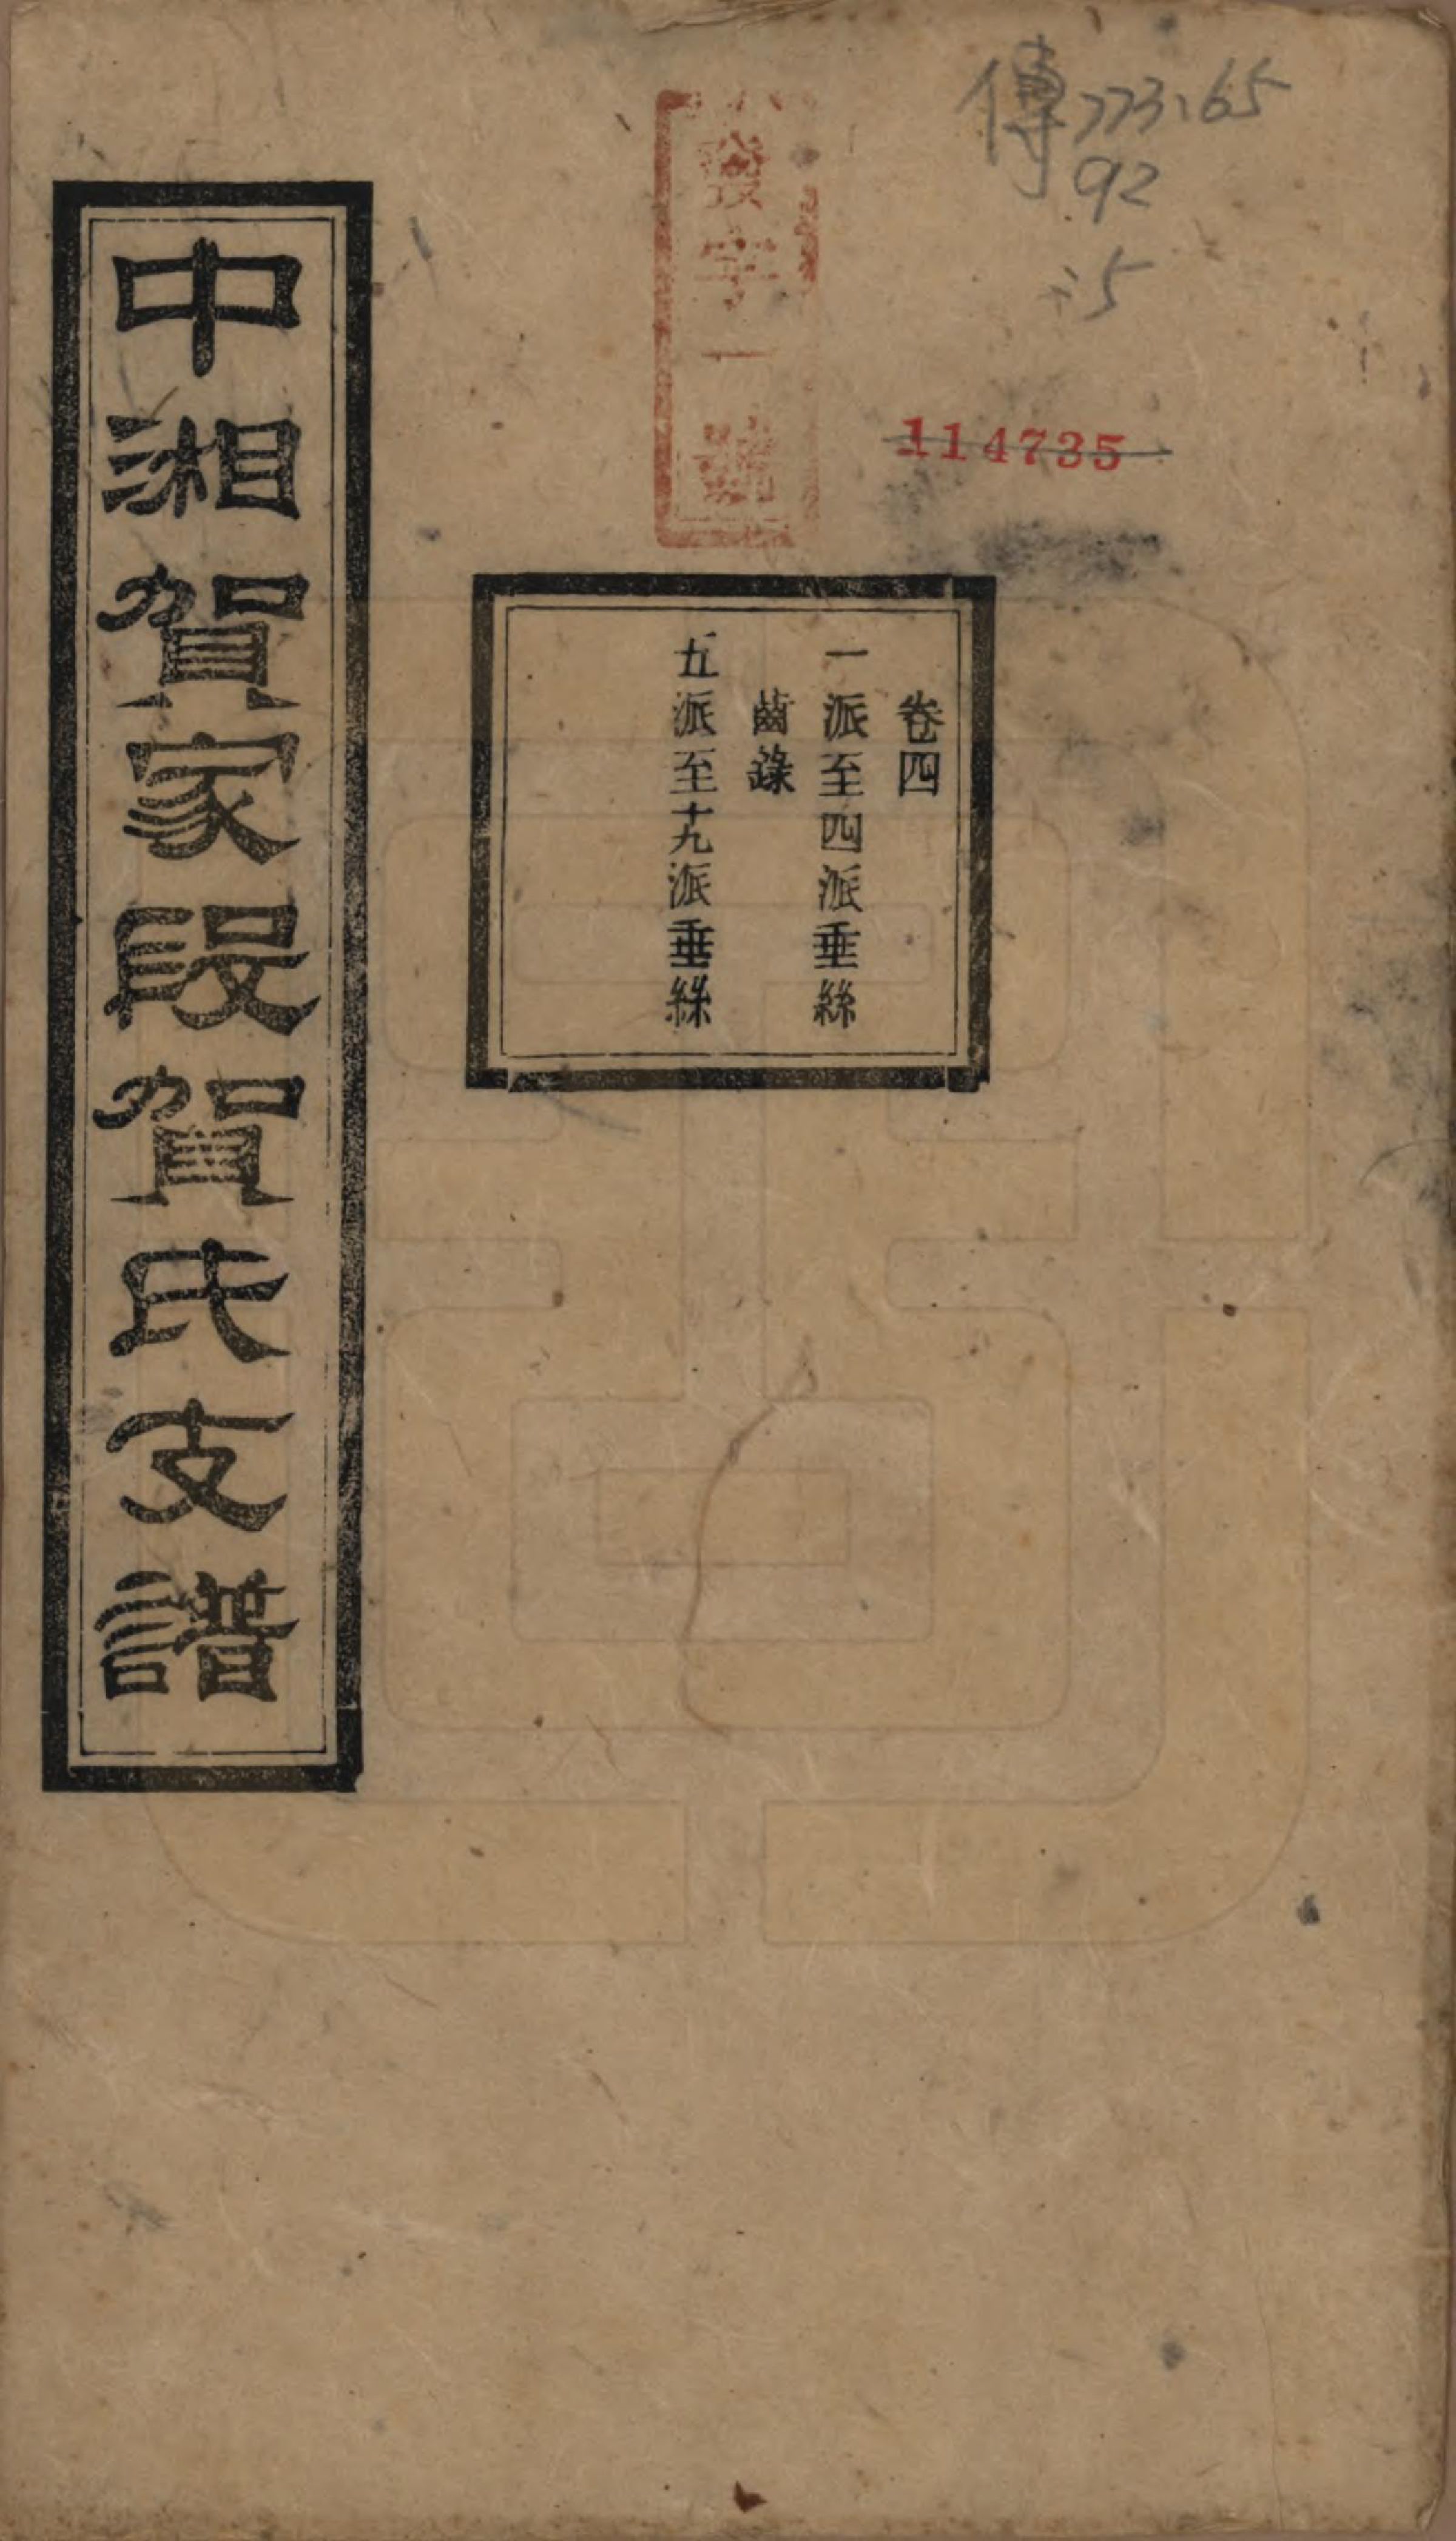 傳773.65
92
:5
發字一號
114735
卷四
一派至四派垂絲
齒錄
五派至十九派垂絲
中湘賀家段賀氏支譜